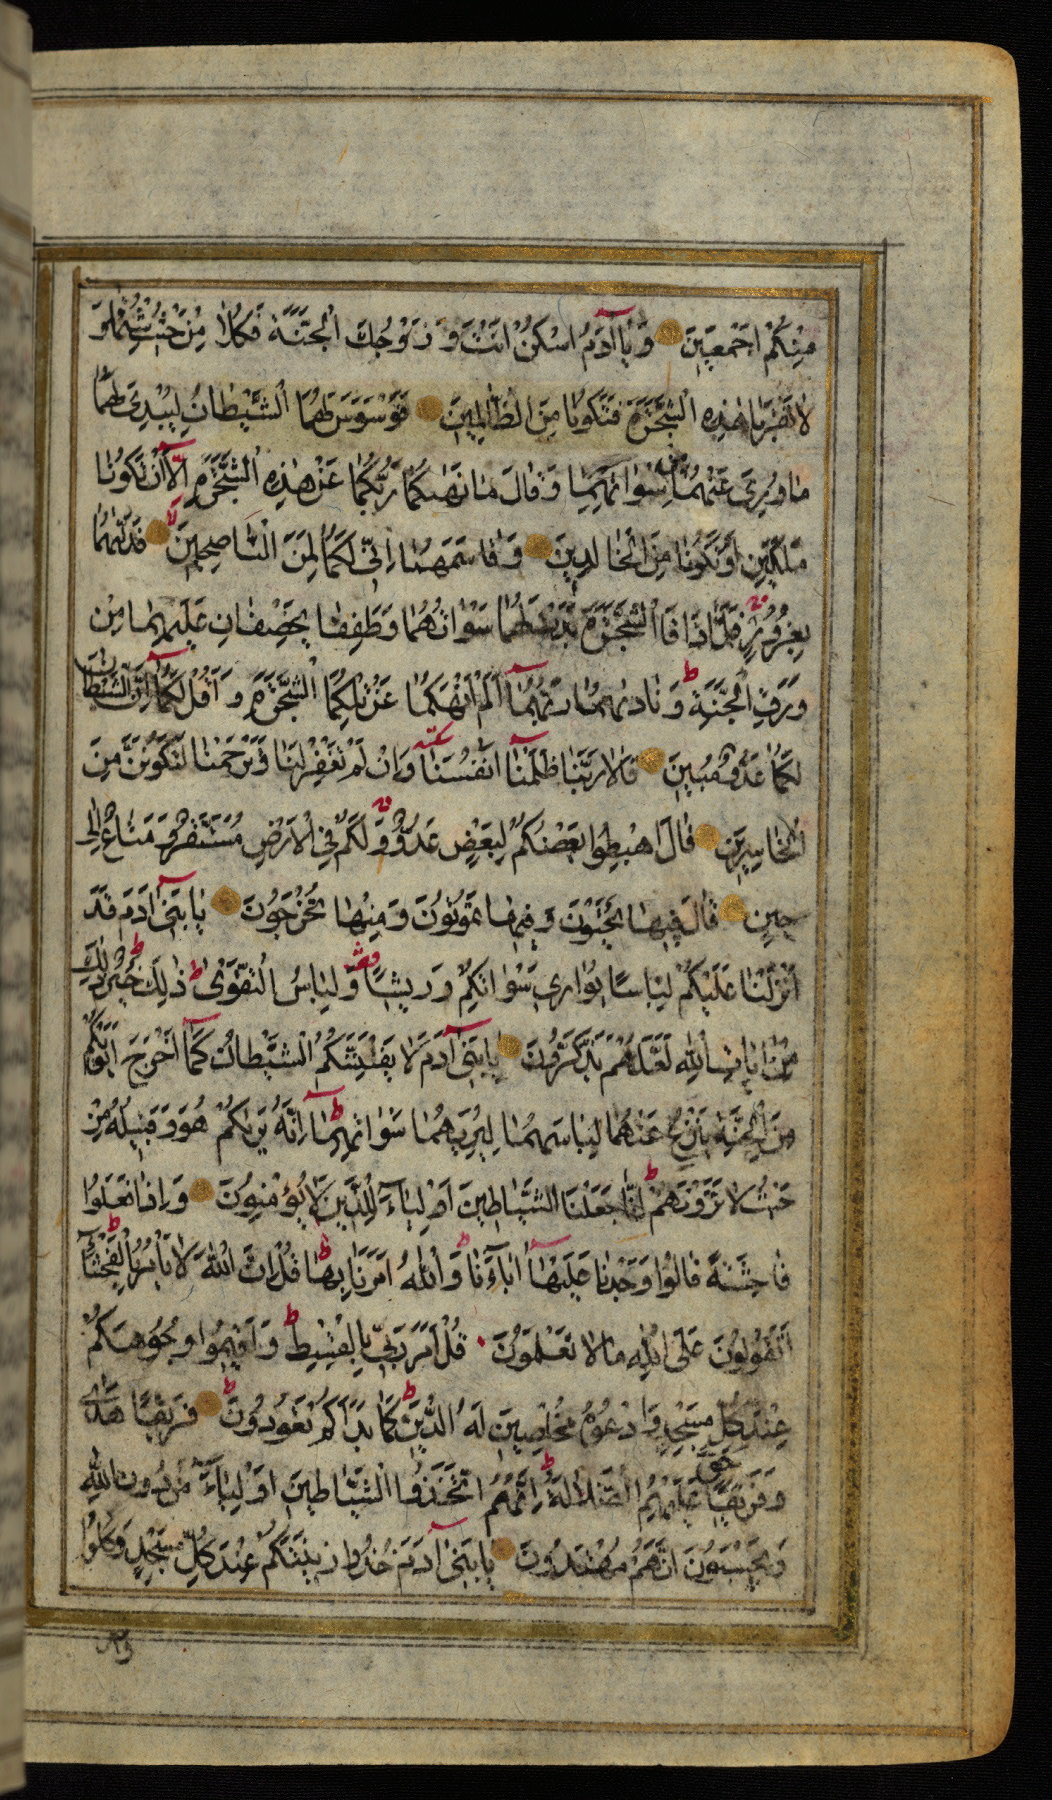 مِنْكُمْ اَجْمَعِينَ وَيَاآدَمُ اسْكُنْ اَنْتَ وَزَوْجُكَ الْجَنَّةَ فَكُلَا مِنْ حَيْثُ شِئْتُمَا وَ
لَا تَقْرَبَا هٰذِهِ الشَّجَرَةَ فَتَكُونَا مِنَ الظَّالِمِينَ فَوَسْوَسَ لَهُمَا الشَّيْطَانُ لِيُبْدِىَ لَهُمَا
مَا وُرِىَ عَنْهُمَا مِنْ سَوْاتِهِمَا وَقَالَ مَا نَهٰيكُمَا رَبُّكُمَا عَنْ هٰذِهِ الشَّجَرَةِ اِلَّآ اَنْ تَكُونَا
مَلَكَيْنِ اَوْ تَكُونَا مِنَ الْخَالِدِينَ وَقَاسَمَهُمَا اِنِّى لَكُمَا لَمِنَ النَّاصِحِينَ فَدَلّٰيهُمَا
بِغُرُورٍ فَلَمَّا ذَاقَا الشَّجَرَةَ بَدَتْ لَهُمَا سَوْاتُهُمَا وَطَفِقَا يَخْصِفَانِ عَلَيْهِمَا مِنْ
وَرَقِ الْجَنَّةِ وَنَادٰيهُمَا رَبُّهُمَآ اَلَمْ اَنْهَكُمَا عَنْ تِلْكُمَا الشَّجَرَةِ وَاَقُلْ لَكُمَآ اِنَّ الشَّيْطَانَ
لَكُمَا عَدُوٌّ مُبِينٌ قَالَا رَبَّنَا ظَلَمْنَآ اَنْفُسَنَا وَاِنْ لَمْ تَغْفِرْ لَنَا وَتَرْحَمْنَا لَنَكُونَنَّ مِنَ
الْخَاسِرِينَ قَالَ اهْبِطُوا بَعْضُكُمْ لِبَعْضٍ عَدُوٌّ وَلَكُمْ فِى الْاَرْضِ مُسْتَقَرٌّ وَمَتَاعٌ اِلٰى
حِينٍ قَالَ فِيهَا تَحْيَوْنَ وَفِيهَا تَمُوتُونَ وَمِنْهَا تُخْرَجُونَ يَابَنِىٓ آدَمَ قَدْ
اَنْزَلْنَا عَلَيْكُمْ لِبَاسًا يُوَارِى سَوْاتِكُمْ وَرِيشًا وَلِبَاسُ التَّقْوٰى ذٰلِكَ خَيْرٌ ذٰلِكَ
مِنْ ايَاتِ اللّٰهِ لَعَلَّهُمْ يَذَّكَّرُونَ يَابَنِىٓ آدَمَ لَا يَفْتِنَنَّكُمُ الشَّيْطَانُ كَمَآ اَخْرَجَ اَبَوَيْكُمْ
مِنَ الْجَنَّةِ يَنْزِعُ عَنْهُمَا لِبَاسَهُمَا لِيُرِيَهُمَا سَوْاتِهِمَا اِنَّهُ يَرٰيكُمْ هُوَ وَقَبِيلُهُ مِنْ
حَيْثُ لَا تَرَوْنَهُمْ اِنَّا جَعَلْنَا الشَّيَاطِينَ اَوْلِيَآءَ لِلَّذِينَ لَا يُؤْمِنُونَ وَاِذَا فَعَلُوا
فَاحِشَةً قَالُوا وَجَدْنَا عَلَيْهَآ اٰبَآءَنَا وَاللّٰهُ اَمَرَنَا بِهَا قُلْ اِنَّ اللّٰهَ لَا يَاْمُرُ بِالْفَحْشَآءِ
اَتَقُولُونَ عَلَى اللّٰهِ مَا لَا تَعْلَمُونَ قُلْ اَمَرَ رَبِّى بِالْقِسْطِ وَاَقِيمُوا وُجُوهَكُمْ
عِنْدَ كُلِّ مَسْجِدٍ وَادْعُوهُ مُخْلِصِينَ لَهُ الدِّينَ كَمَا بَدَاَكُمْ تَعُودُونَ فَرِيقًا هَدٰى
وَفَرِيقًا حَقَّ عَلَيْهِمُ الضَّلَالَةُ اِنَّهُمُ اتَّخَذُوا الشَّيَاطِينَ اَوْلِيَآءَ مِنْ دُونِ اللّٰهِ
وَيَحْسَبُونَ اَنَّهُمْ مُهْتَدُونَ يَابَنِىٓ آدَمَ خُذُوا زِينَتَكُمْ عِنْدَ كُلِّ مَسْجِدٍ وَكُلُوا